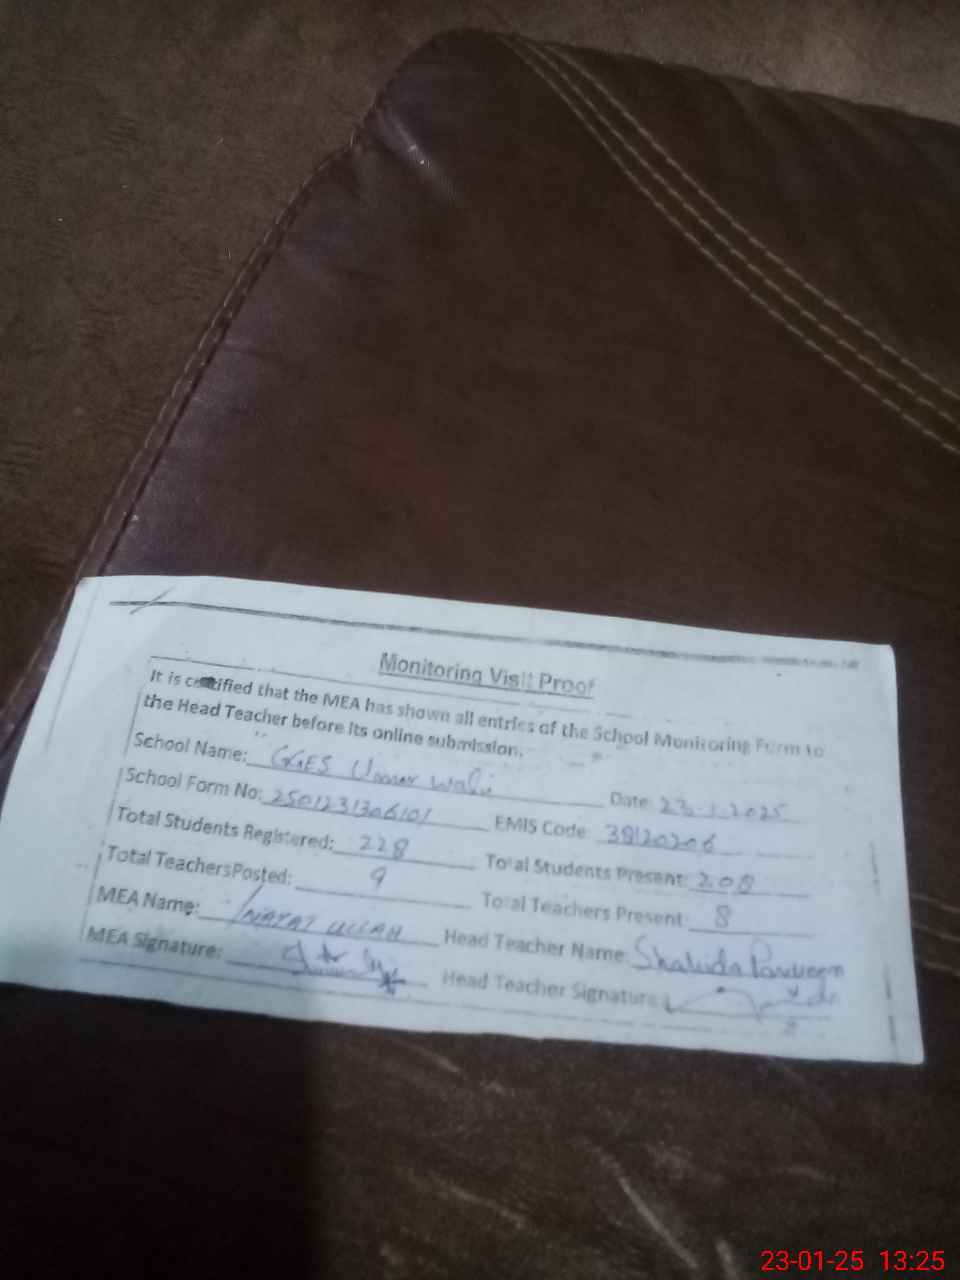 Monitoring Visit Proof
It is certified that the MEA has shown all entries of the School Monitoring Form to
the Head Teacher before its online submission.
School Name: GGES Umar Wali Date: 23.1.2025
School Form No: 2501231306101 EMIS Code: 38120206
Total Students Registered: 228 Total Students Present: 208
Total TeachersPosted: 9 Total Teachers Present: 8
MEA Name: INAYAT ULLAH Head Teacher Name: Shahida Parveen
MEA Signature: Head Teacher Signature:
23-01-25 13:25